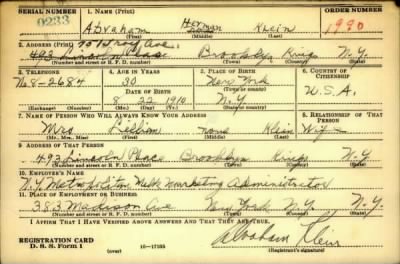 SERIAL NUMBER
0233
1. NAME (Print)
ORDER NUMBER
Abraham Herman Klein
1990
(First) (Middle) (Last)
2. ADDRESS (Print)
Ave.
493 Lincoln Place Brooklyn Kings N.Y.
(Number and street or R. F. D. number) (Town) (County) (State)
3. TELEPHONE
4. AGE IN YEARS
5. PLACE OF BIRTH
6. COUNTRY OF CITIZENSHIP
8-2684
30
New York
DATE OF BIRTH
(Town or county)
8 22 1910
N.Y.
U.S.A.
(Exchange) (Number)
(Mo.) (Day) (Yr.)
(State or country)
7. NAME OF PERSON WHO WILL ALWAYS KNOW YOUR ADDRESS
8. RELATIONSHIP OF THAT PERSON
Mrs Lillian none Klein
Wife
(Mr., Mrs., Miss) (First) (Middle) (Last)
9. ADDRESS OF THAT PERSON
493 Lincoln Place Brooklyn Kings N.Y.
(Number and street or R. F. D. number) (Town) (County) (State)
10. EMPLOYER'S NAME
N.Y. Metropolitan Milk Marketing Administrator
11. PLACE OF EMPLOYMENT OR BUSINESS
383 Madison Ave New York N.Y. N.Y.
(Number and street or R. F. D. number) (Town) (County) (State)
I AFFIRM THAT I HAVE VERIFIED ABOVE ANSWERS AND THAT THEY ARE TRUE.
Abraham Klein
REGISTRATION CARD
D. S. S. Form 1
(over)
16-17105
(Registrant's signature)